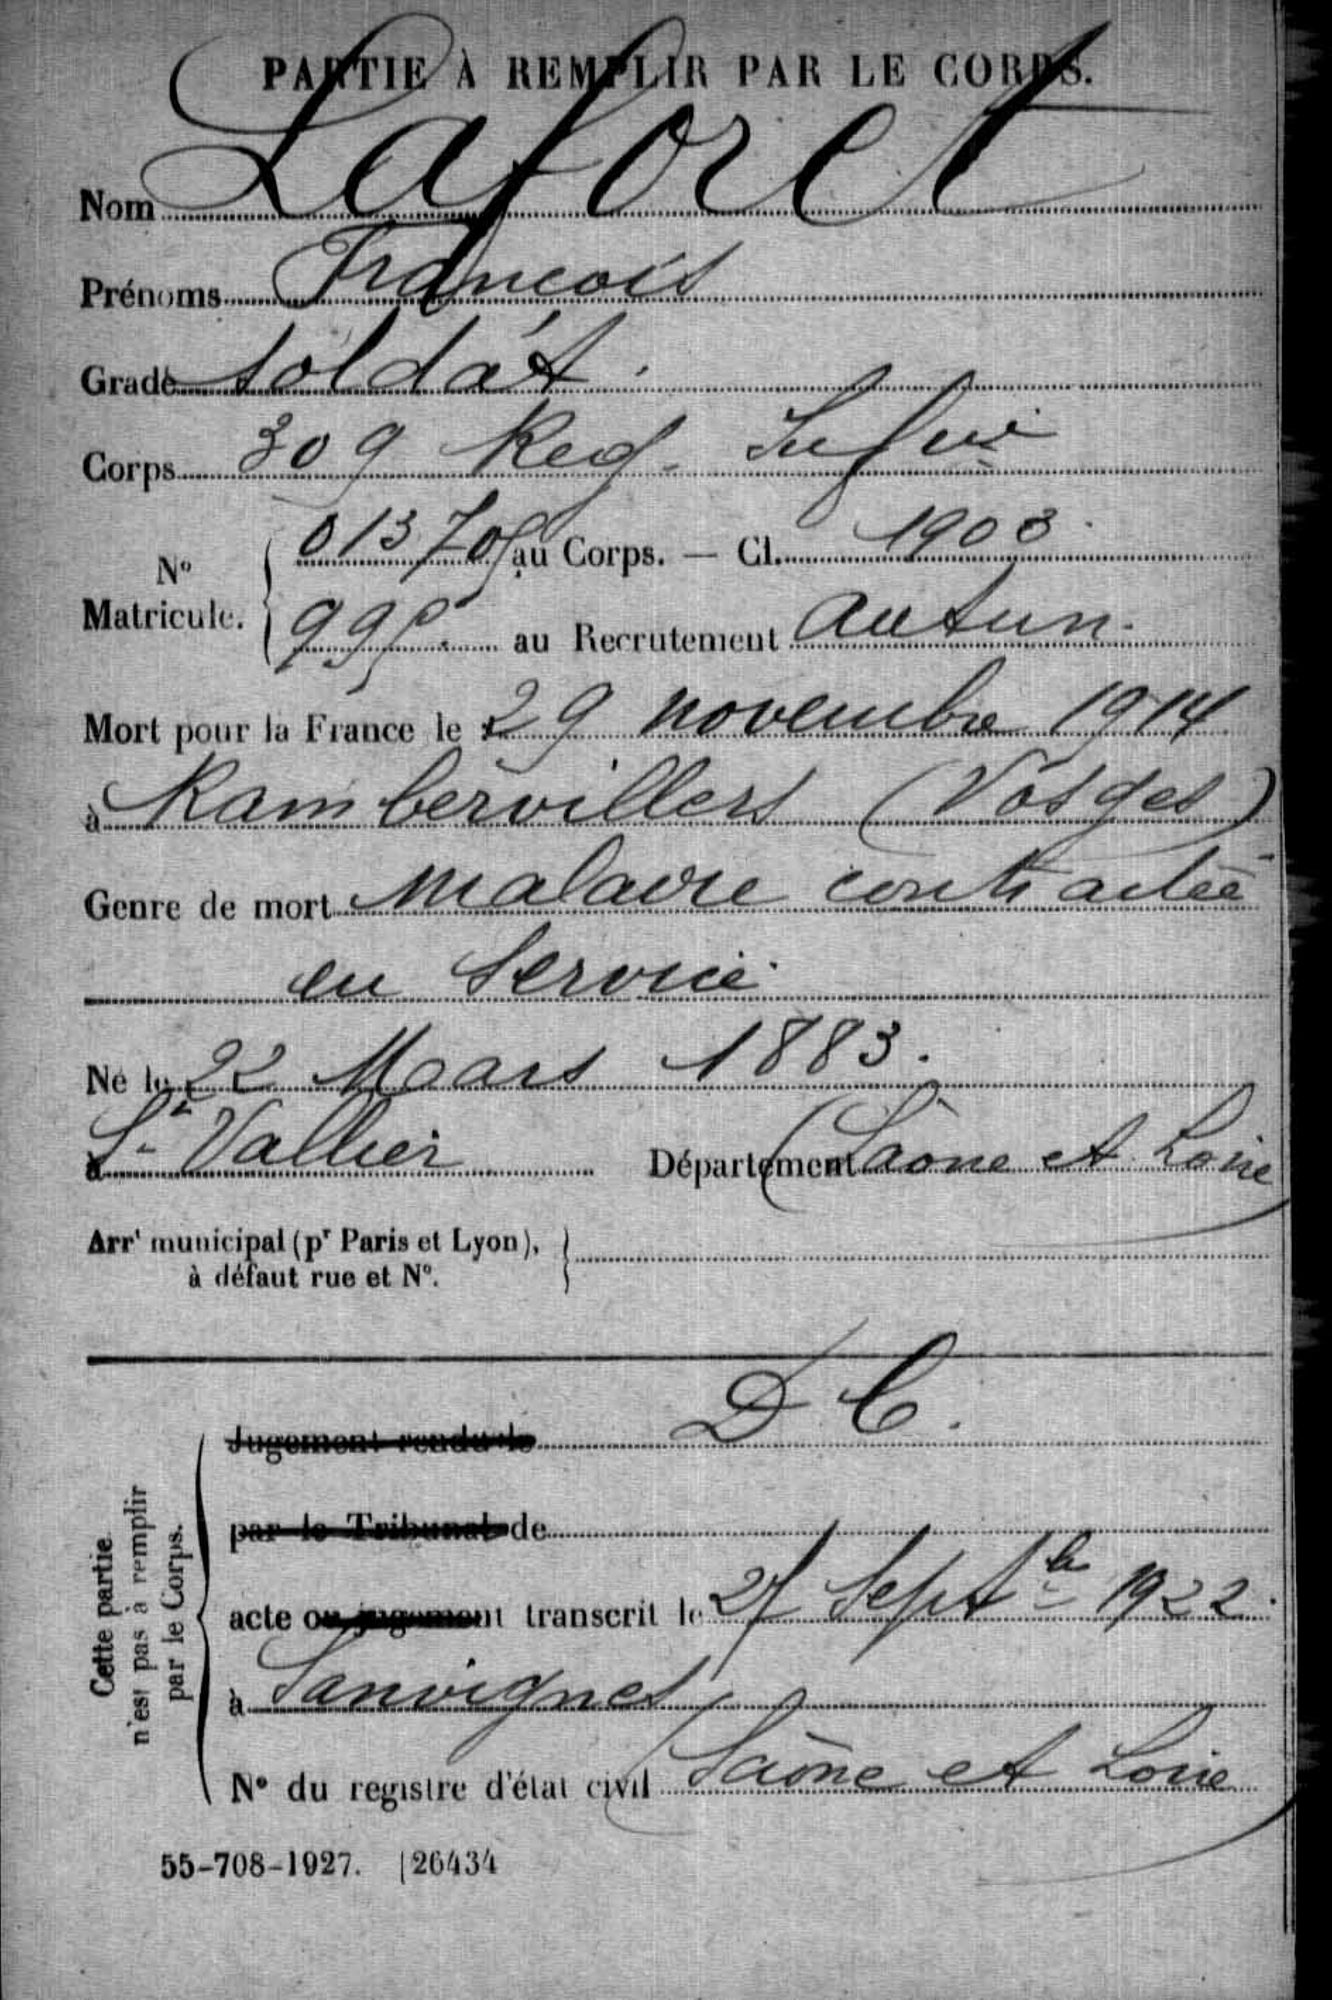 PARTIE À REMPLIR PAR LE CORPS.
Nom Laforet
Prénoms François
Grade Soldat.
Corps 309 Reg. Infie
013709 au Corps. — Cl. 1903.
N°
Matricule.
995. au Recrutement Autun.
Mort pour la France le 29 novembre 1914
à Rambervillers (Vosges)
Genre de mort maladie contractée
en service.
Né le 22 Mars 1883.
à St Vallier Département (Saône et Loire)
Arrt municipal (pr Paris et Lyon),
à défaut rue et N°.
D C.
Jugement rendu le
par le Tribunal de
acte ou jugement transcrit le 27 Septbre 1922.
à Sanvignes
(Saône et Loire)
N° du registre d'état civil
Cette partie
n'est pas à remplir
par le Corps.
55-708-1927. [26434